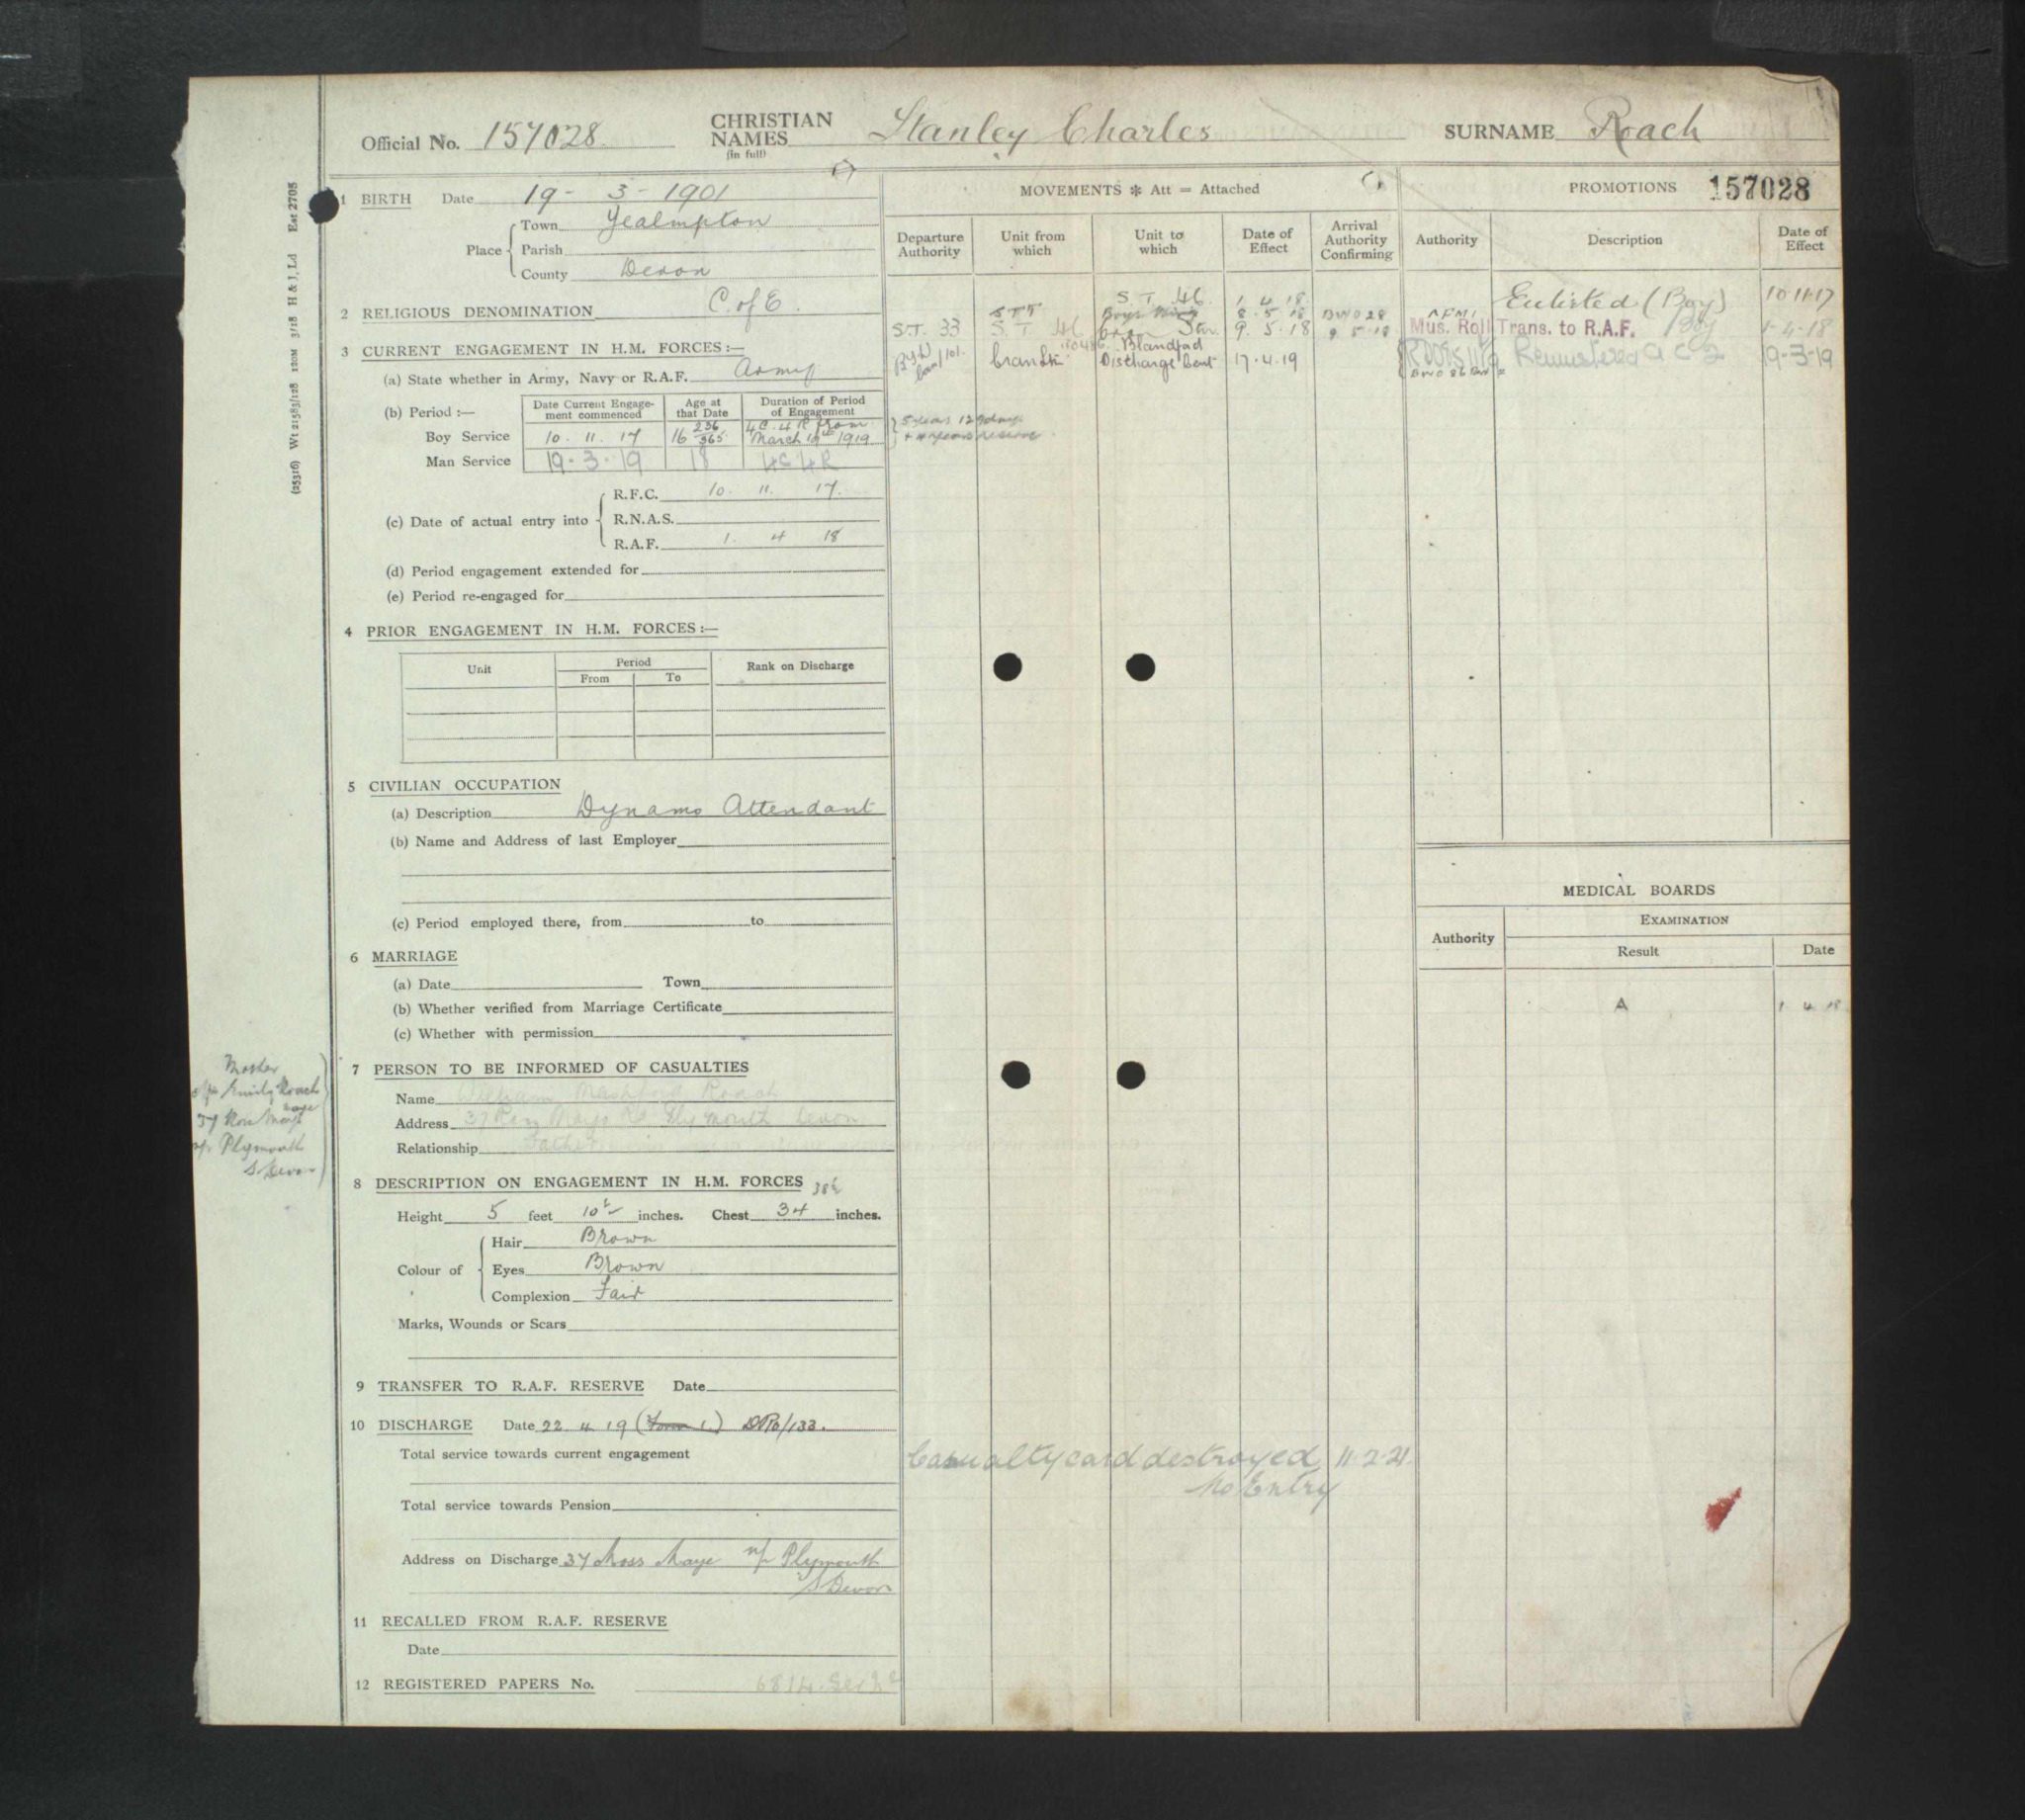 Official No. 157028 CHRISTIAN NAMES (in full) Stanley Charles SURNAME Roach
(25316) Wt 21583/128 120M 3/18 H & J, Ld Est 2705
1 BIRTH Date 19 - 3 - 1901
Place Town Yealmpton
Parish
County Devon
2 RELIGIOUS DENOMINATION C. of E.
3 CURRENT ENGAGEMENT IN H.M. FORCES :—
(a) State whether in Army, Navy or R.A.F. Army
(b) Period :— Date Current Engagement commenced Age at that Date Duration of Period of Engagement
Boy Service 10. 11. 17 16 236/365 4C. 4R from March 19th 1919
Man Service 19. 3. 19 18 4C 4R
(c) Date of actual entry into R.F.C. 10. 11. 17.
R.N.A.S.
R.A.F. 1. 4 18
(d) Period engagement extended for
(e) Period re-engaged for
4 PRIOR ENGAGEMENT IN H.M. FORCES :—
Unit Period From To Rank on Discharge
5 CIVILIAN OCCUPATION
(a) Description Dynamo Attendant
(b) Name and Address of last Employer
(c) Period employed there, from to
6 MARRIAGE
(a) Date Town
(b) Whether verified from Marriage Certificate
(c) Whether with permission
7 PERSON TO BE INFORMED OF CASUALTIES
Name William Roach
Address 37 Plymouth Devon
Relationship Father
Mother
Emily Roach
37
Plymouth
S. Devon
8 DESCRIPTION ON ENGAGEMENT IN H.M. FORCES
Height 5 feet 10½ inches. Chest 34 inches.
Colour of Hair Brown
Eyes Brown
Complexion Fair
Marks, Wounds or Scars
9 TRANSFER TO R.A.F. RESERVE Date
10 DISCHARGE Date 22 4 19 /133.
Total service towards current engagement
Total service towards Pension
Address on Discharge 37 Plymouth
S Devon
11 RECALLED FROM R.A.F. RESERVE
Date
12 REGISTERED PAPERS No.
MOVEMENTS * Att = Attached
Departure Authority Unit from which Unit to which Date of Effect Arrival Authority Confirming
S T 46 1. 4 18
8. 5. 18
S.T. 33 S T 46 9. 5. 18 9 5 18
Blandford
Discharge Cent 17.4.19
Casualty card destroyed 11.2.21.
No Entry
PROMOTIONS 157028
Authority Description Date of Effect
Enlisted (Boy) 10.11.17
Mus. Roll Trans. to R.A.F. Boy 1-4-18
Remustered A C 2 19-3-19
MEDICAL BOARDS
Authority EXAMINATION
Result Date
A 1 4 18